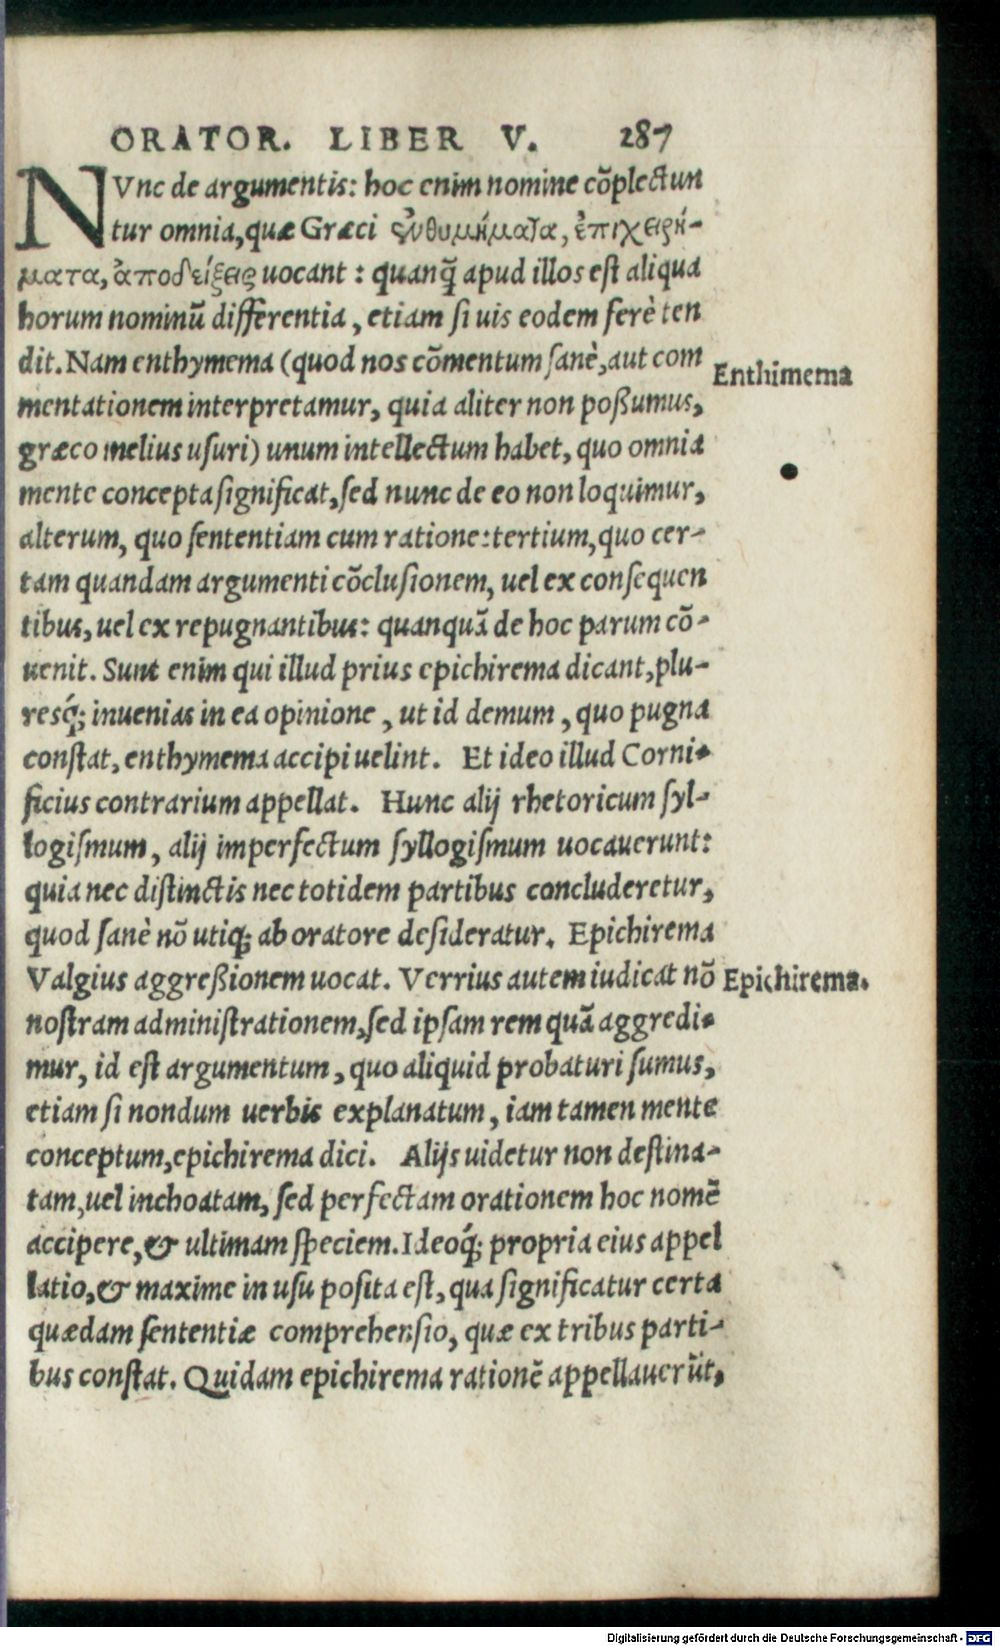 ORATOR. LIBER V. 287
NVnc de argumentis: hoc enim nomine cõplectun
tur omnia, quæ Græci ἐνθυμήματα, ἐπιχειρή-
ματα, ἀποδείξεις uocant: quanq̃ apud illos est aliqua
horum nominũ differentia, etiam si uis eodem ferè ten
dit. Nam enthymema (quod nos cõmentum sanè, aut com
Enthimema
mentationem interpretamur, quia aliter non poßumus,
græco melius usuri) unum intellectum habet, quo omnia
mente concepta significat, sed nunc de eo non loquimur,
alterum, quo sententiam cum ratione: tertium, quo cer-
tam quandam argumenti cõclusionem, uel ex consequen
tibus, uel ex repugnantibus: quanquã de hoc parum cõ-
uenit. Sunt enim qui illud prius epichirema dicant, plu-
resq́; inuenias in ea opinione, ut id demum, quo pugna
constat, enthymema accipi uelint. Et ideo illud Corni-
ficius contrarium appellat. Hunc alij rhetoricum syl-
logismum, alij imperfectum syllogismum uocauerunt:
quia nec distinctis nec totidem partibus concluderetur,
quod sanè nõ utiq; ab oratore desideratur. Epichirema
Valgius aggreßionem uocat. Verrius autem iudicat nõ
Epichirema.
nostram administrationem, sed ipsam rem quã aggredi-
mur, id est argumentum, quo aliquid probaturi sumus,
etiam si nondum uerbis explanatum, iam tamen mente
conceptum, epichirema dici. Alijs uidetur non destina-
tam, uel inchoatam, sed perfectam orationem hoc nomẽ
accipere, & ultimam speciem. Ideoq́; propria eius appel
latio, & maxime in usu posita est, qua significatur certa
quædam sententiæ comprehensio, quæ ex tribus parti-
bus constat. Quidam epichirema rationẽ appellauerũt,
Digitalisierung gefördert durch die Deutsche Forschungsgemeinschaft - DFG